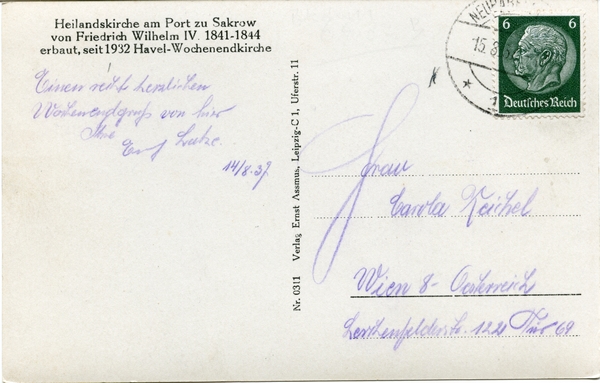 Heilandskirche am Port zu Sakrow
von Friedrich Wilhelm IV. 1841-1844
erbaut, seit 1932 Havel-Wochenendkirche
Einen recht herzlichen
Wochenendgruß von hier
Ihr
Lutze
14/8.37
Nr. 0311 Verlag Ernst Assmus, Leipzig-C 1, Uferstr. 11
6 6
Deutsches Reich
15.8
Frau
Carola Reichel
Wien 8 - Oesterreich
Lerchenfelderstr. 122 Tür 69